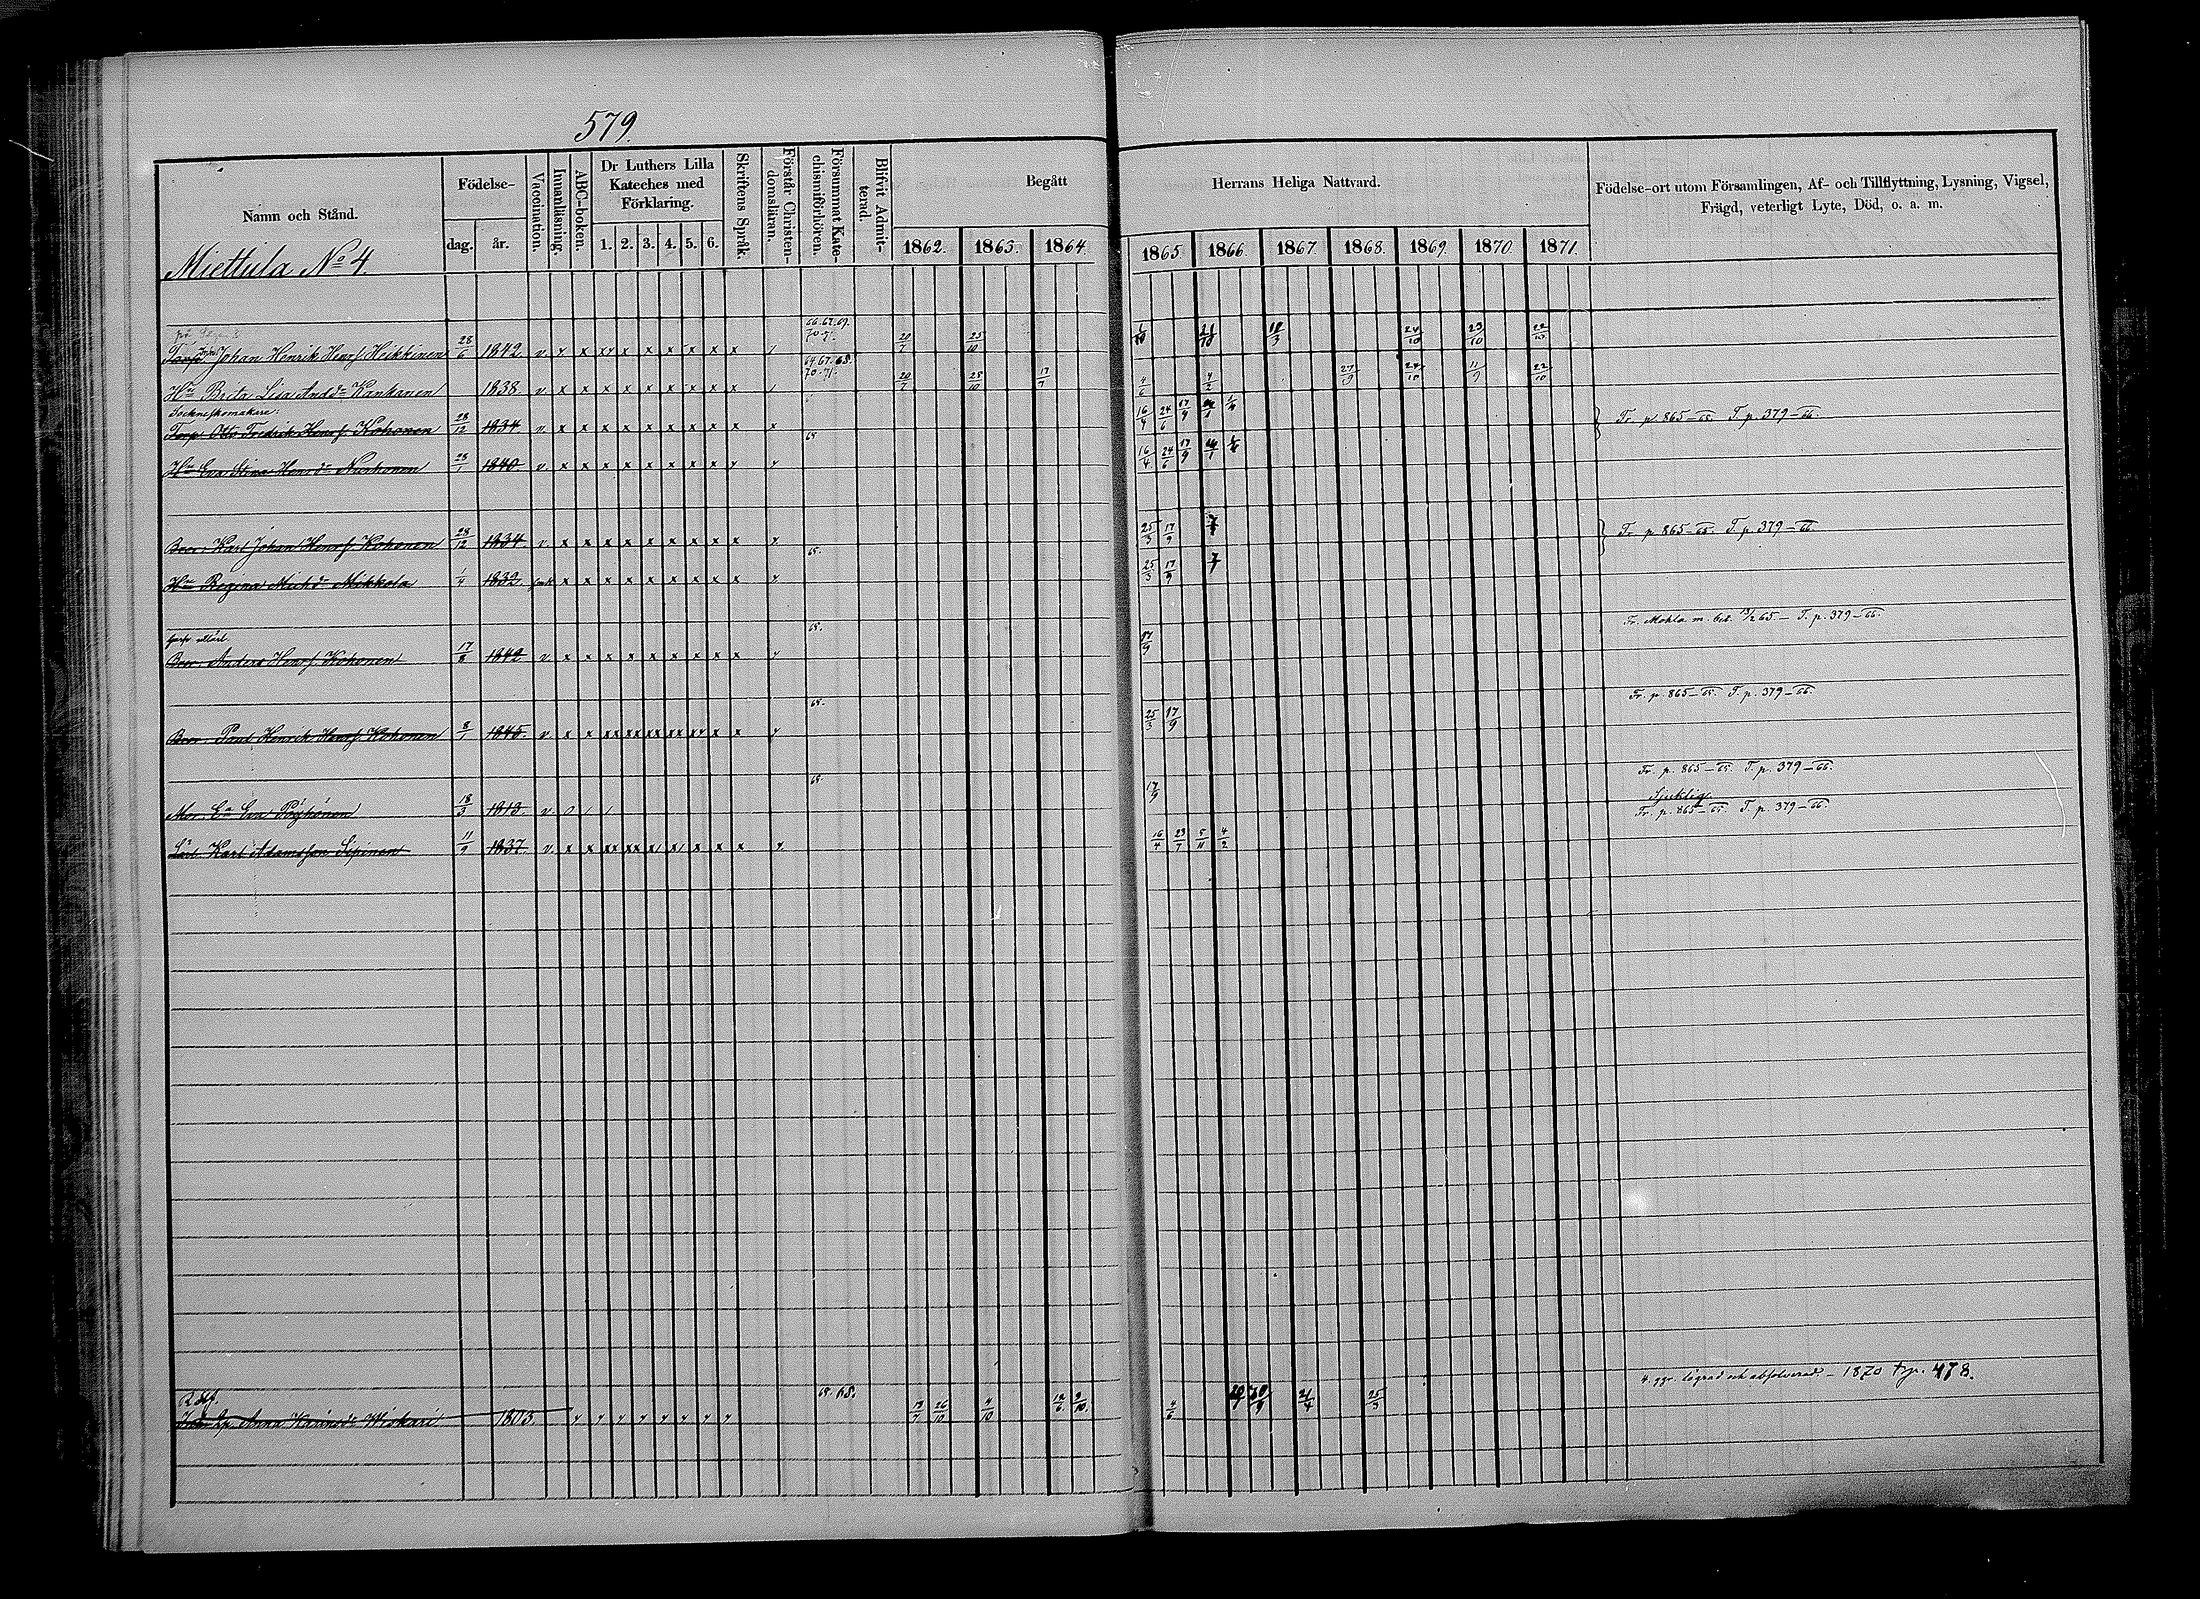 579.
Namn och Stånd.
Födelse-
dag.
år.
Vaccination.
Innanläsning.
ABC-boken.
Dr Luthers Lilla
Kateches med
Förklaring.
1. 2. 3. 4. 5. 6.
Skriftens Språk.
Förstår Christen-
domsläran.
Försummat Kate-
chismiförhören.
Blifvit Admit-
terad.
Begått
Herrans Heliga Nattvard.
1862. 1863. 1864. 1865. 1866. 1867. 1868. 1869. 1870. 1871.
Födelse-ort utom Församlingen, Af- och Tillflyttning, Lysning, Vigsel,
Frägd, veterligt Lyte, Död, o. a. m.
Miettula No 4.
66. 67. 69.
70. 71.
Johan Henrik Henr. Heikkinen 28/6 1842. v x xy x x x x x x x 20/7 25/10 21/10 12/3 24/10 23/10 22/10
64. 67. 68.
70. 71.
Hu Brita Lisa Andd Kankanen 1838. v x x x x x x x x x 20/7 28/10 17/7 4/6 4/2 27/9 24/10 11/9 22/10
Sockneskomakare.
Torp Otto Fredrik Henr. Kohonen 28/12 1834. v x x x x x x x x x x 16/4 24/6 17/9 Fr. p. 865-65. T. p. 379-66.
65
Hu Eva Stina Hen. d. Nuuhonen 28/1 1840 v. x x x x x x x x y y 16/4. 24/6 17/9
Bror. Karl Johan Henr. Kohonen 28/12 1834. v. x x x x x x x x x y 25/3 17/9 Fr. p. 865-65. T. p. 379-66
65.
Hu Regina Michd Mikkola 1/4 1832. x x x x x x x x x y 25/3 17/9
65.
Fr. Mohla m. bet. 13/2 65.- T. p. 379-66.
Bror. Anders Henr. Kohonen 17/8 1842 v x x x x x x x x x y 17/9
65.
Fr. p. 865-65. T. p. 379-66.
Bror. Paul Henrik Henr. Kohonen 8/1 1845. v x x xx xx xx xx xy x x y 25/3 17/9
65.
Fr. p. 865-65. T. p. 379-66.
Sjuklig
Mor. Ea Eva Pöyhönen 18/3 1813. v 0 / / 17/9 Fr. p. 865-65. T. p. 379-66.
Karl Adamsson Sipinen 11/9 1837. v. x x xx xx x/ x/ x x x y. 16/4 23/7 5/11 4/2
65. 68.
4. ggr. lägrad och absolverad.- 1870 trp. 478.
Anna Karind Miskari 1803. y y y y y y y y 13/7 26/10 4/10 12/6 9/10. 4/6 21/4 25/3